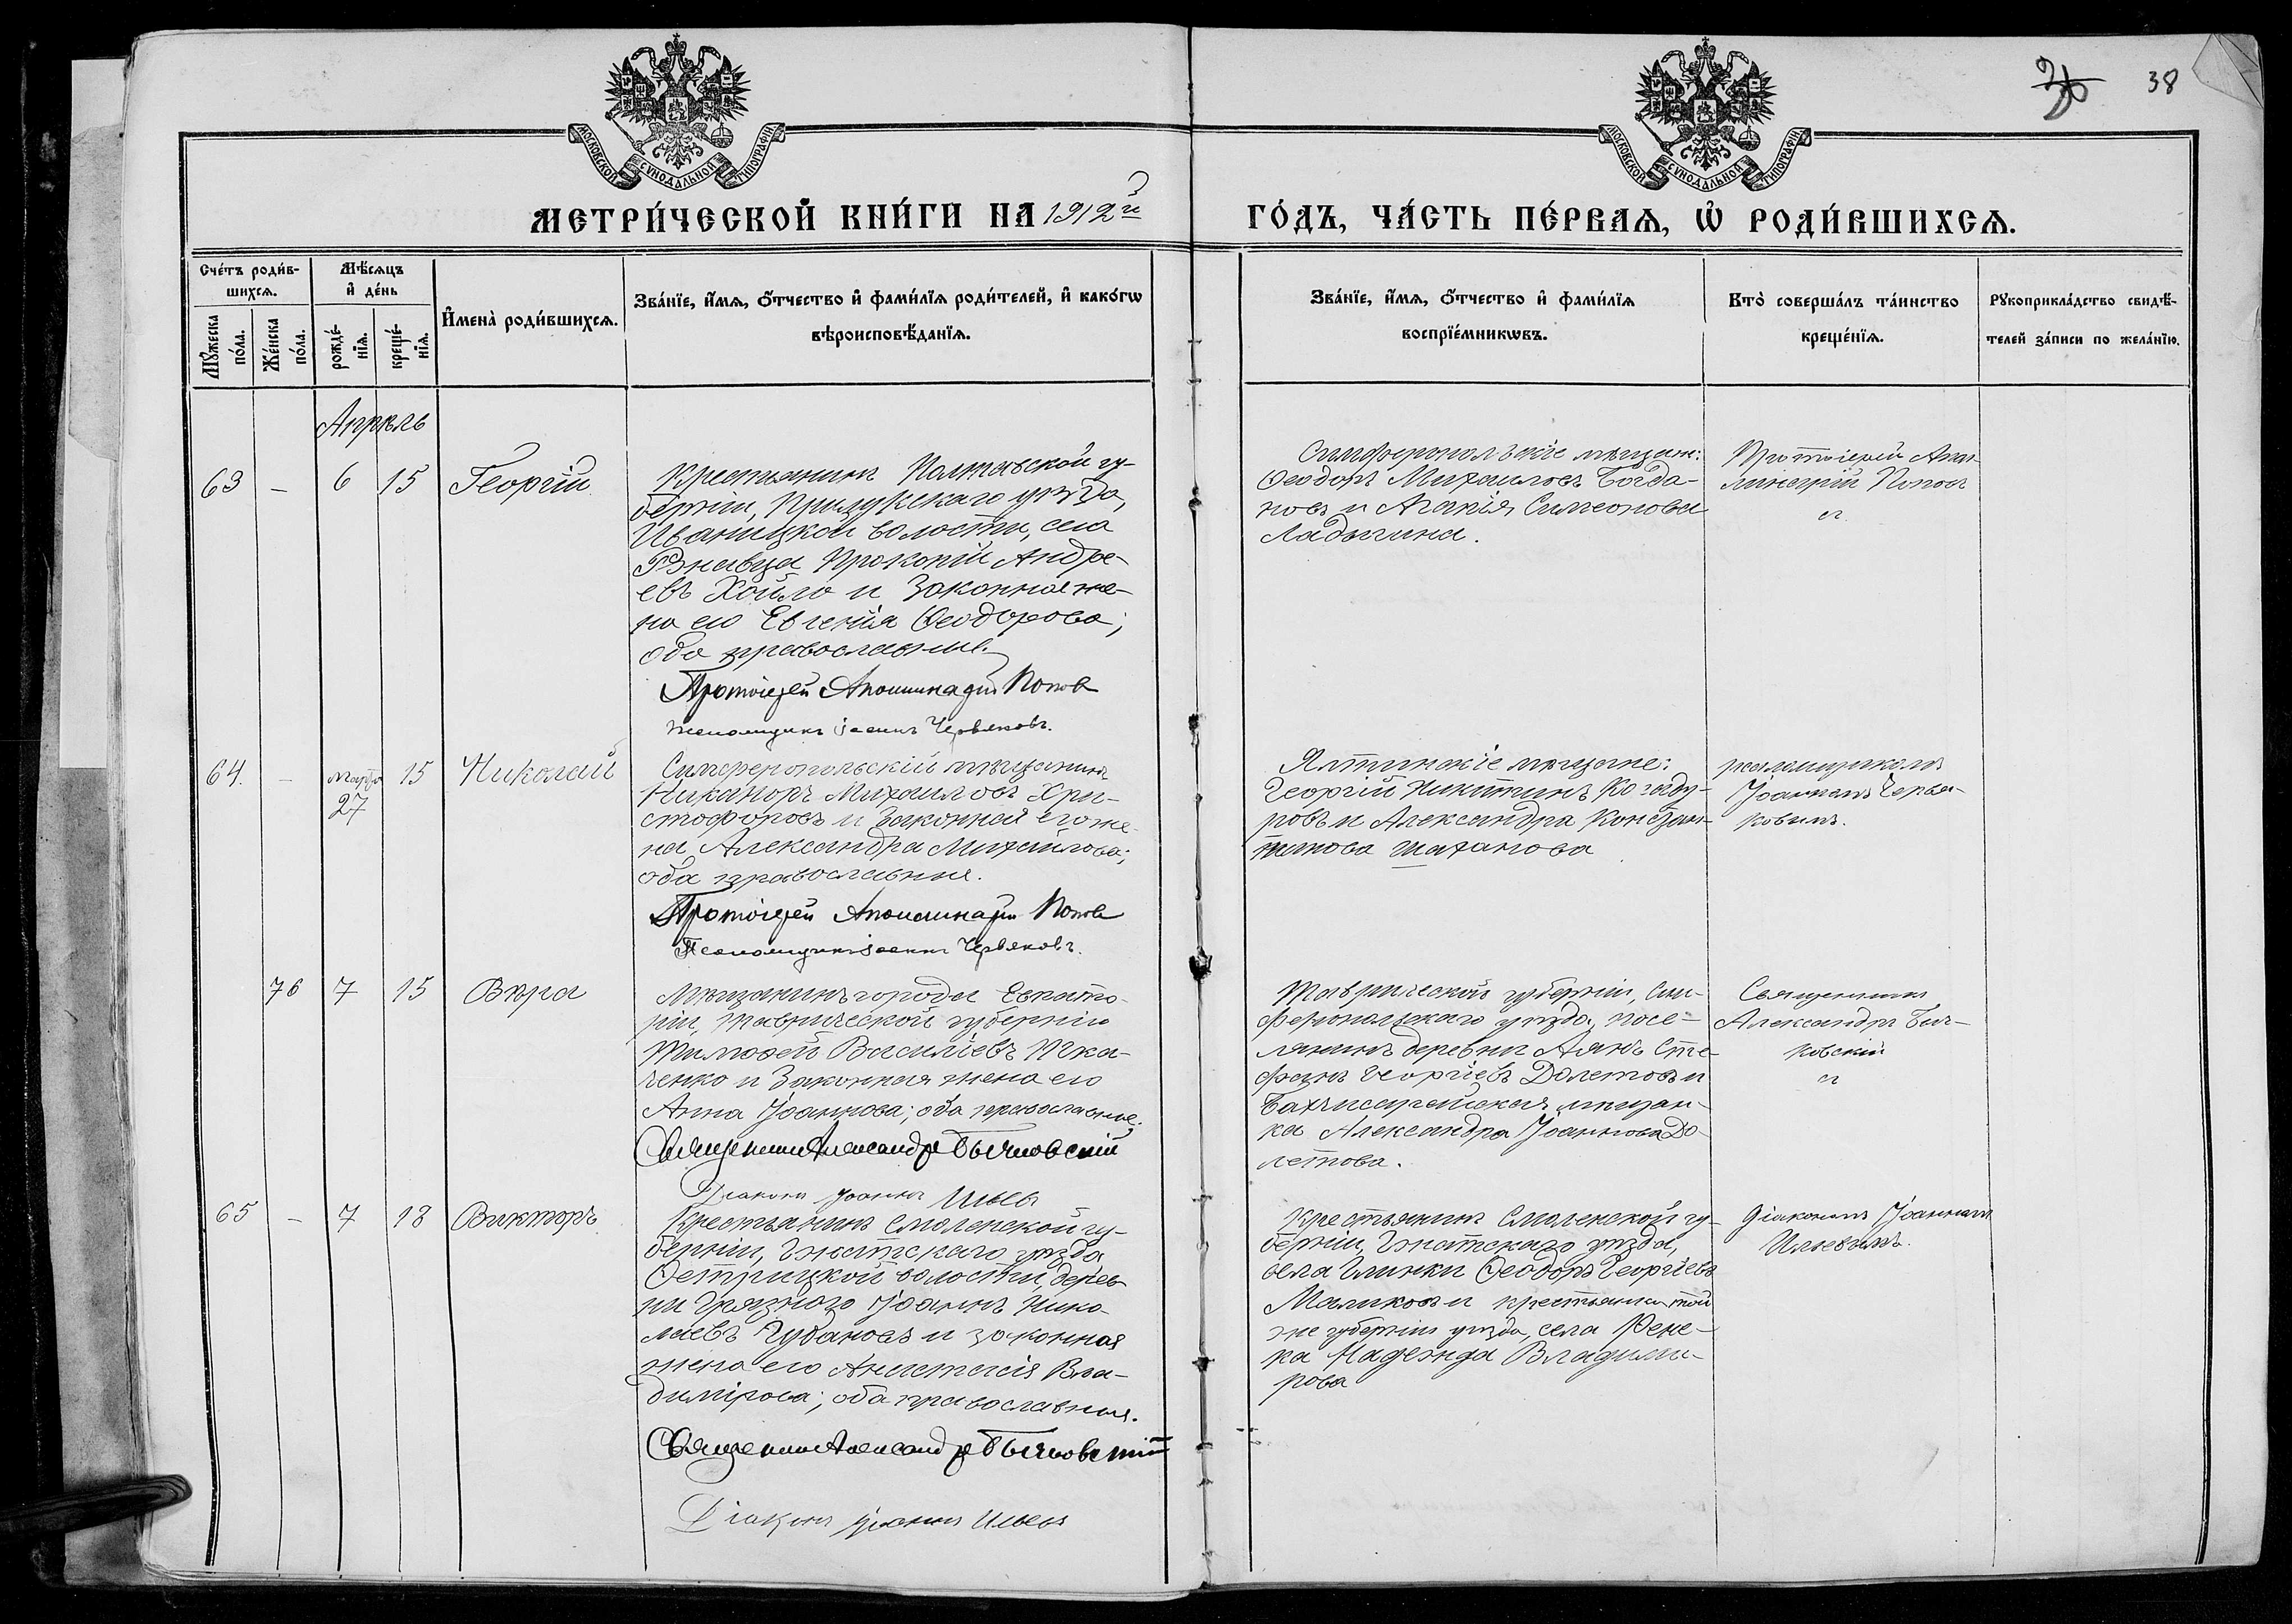 38
МОСКОВСКОЙ СѴНОДАЛЬНОЙ ТИПОГРАФІИ
МОСКОВСКОЙ СѴНОДАЛЬНОЙ ТИПОГРАФІИ
МЕТРИ́ЧЕСКОЙ КНИ́ГИ НА 1912й
ГО́ДЪ, ЧА́СТЬ ПЕ́РВАЯ, Ѡ҆ РОДИ́ВШИХСѦ.
Сче́тъ роди́в-
шихсѧ.
Мꙋ́жеска по́ла.
Же́нска по́ла.
Мѣ́сѧцъ и҆ де́нь
рожде́-нїѧ.
креще́-нїѧ.
И҆мена̀ роди́вшихсѧ.
Зва́нїе, и҆́мѧ, ѻ҆́тчество и҆ фами́лїѧ роди́телей, и҆ како́гѡ
вѣроисповѣ́данїѧ.
Зва́нїе, и҆́мѧ, ѻ҆́тчество и҆ фами́лїѧ
воспрїе́мникѡвъ.
Кто̀ соверша́лъ та́инство
креще́нїѧ.
Рꙋкоприкла́дство свидѣ́-
телей за́писи по жела́нїю.
Апрѣль
63 – 6 15 Георгій
Крестьянинъ Полтавской гу-
берніи, Прилукскаго уѣзда,
Иваницкой волости, села
Рѣнавца Прокопій Андре-
евъ Хойло и законная же-
на его Евгенія Ѳеодорова;
оба православные.
Протоіерей Аполлинарій Поповъ
Псаломщикъ Іоаннъ Червяковъ.
Симферопольскіе мѣщане:
Ѳеодоръ Михаиловъ Богда-
новъ и Агапія Симеонова
Ладыгина.
Протоіерей Апол-
линарій Поповъ
64. – Марта 27 15 Николай
Симферопольскій мѣщанинъ
Никаноръ Михаиловъ Хри-
стофоровъ и законная его же-
на Александра Михайлова;
оба православные.
Протоіерей Аполлинарій Поповъ
Псаломщикъ Іоаннъ Червяковъ.
Ялтинскіе мѣщане:
Георгій Никитинъ
ровъ и Александра Констан-
тинова Шаханова
псаломщикомъ
Іоанномъ Червя-
ковымъ.
76 7 15 Вѣра
Мѣщанинъ города Евпато-
ріи, Таврической губерніи
Тимоѳей Василіевъ Ткa-
ченко и законная жена его
Анна Іоаннова; оба православные.
Священникъ Александръ Бычковскій
Діаконъ Іоаннъ Ильевъ
Таврической губерніи, Сим-
феропольскаго уѣзда, посе-
лянинъ деревни Аянъ Сте-
фанъ Георгіевъ Долетовъ и
Бахчисарайская мѣщан-
ка Александра Іоаннова До-
летова.
Священникъ
Александръ Быч-
ковскій
65 – 7 18 Викторъ
Крестьянинъ Смоленской гу-
берніи, Гжатскаго уѣзда
волости, дерев
ни Грязного Іоаннъ Нико-
лаевъ Губановъ и законная
жена его Анастасія Вла-
димірова; оба православные.
Священникъ Александръ Бычковскій
Діаконъ Іоаннъ Ильевъ
Крестьянинъ Смоленской гу-
берніи, Гжатскаго уѣзда,
села Глинки Ѳеодоръ Георгіевъ
Маликовъ и крестьянка той
же губерніи уѣзда, села
Надежда Владими-
рова
Діакономъ Іоанномъ
Ильевымъ.